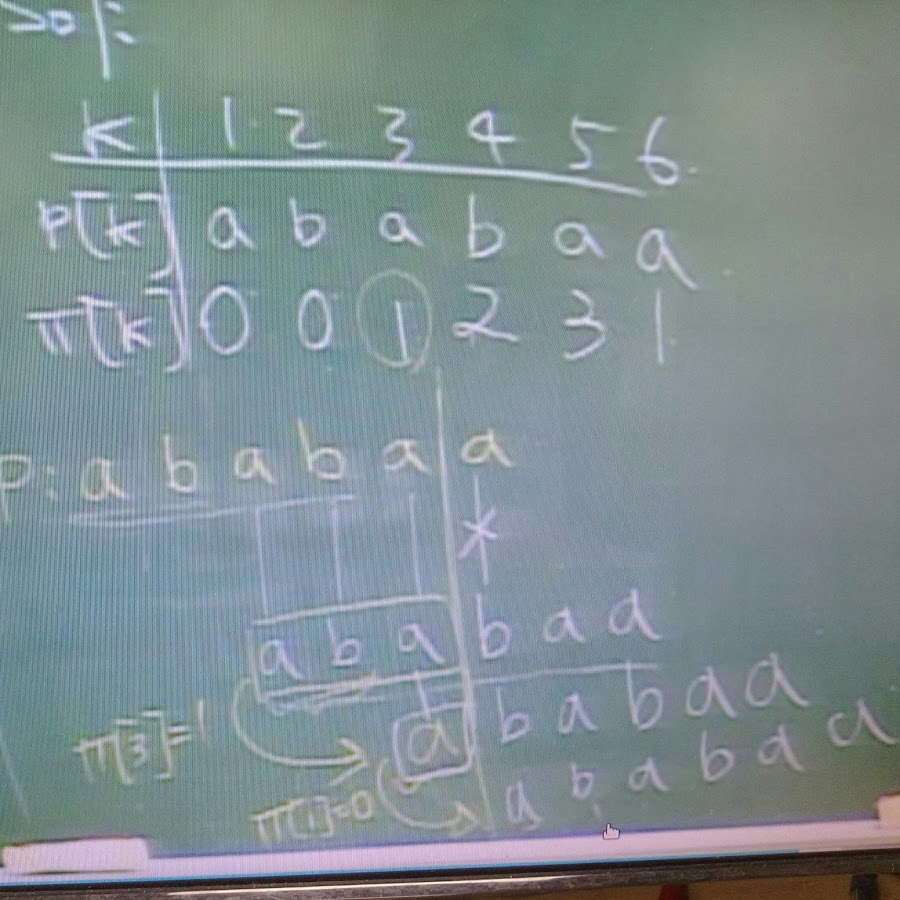 sol:
k 1 2 3 4 5 6
p[k] a b a b a a
π[k] 0 0 1 2 3 1
p: a b a b a a
a b a b a a
π[3]=1 a b a b a a
π[1]=0 a b a b a a